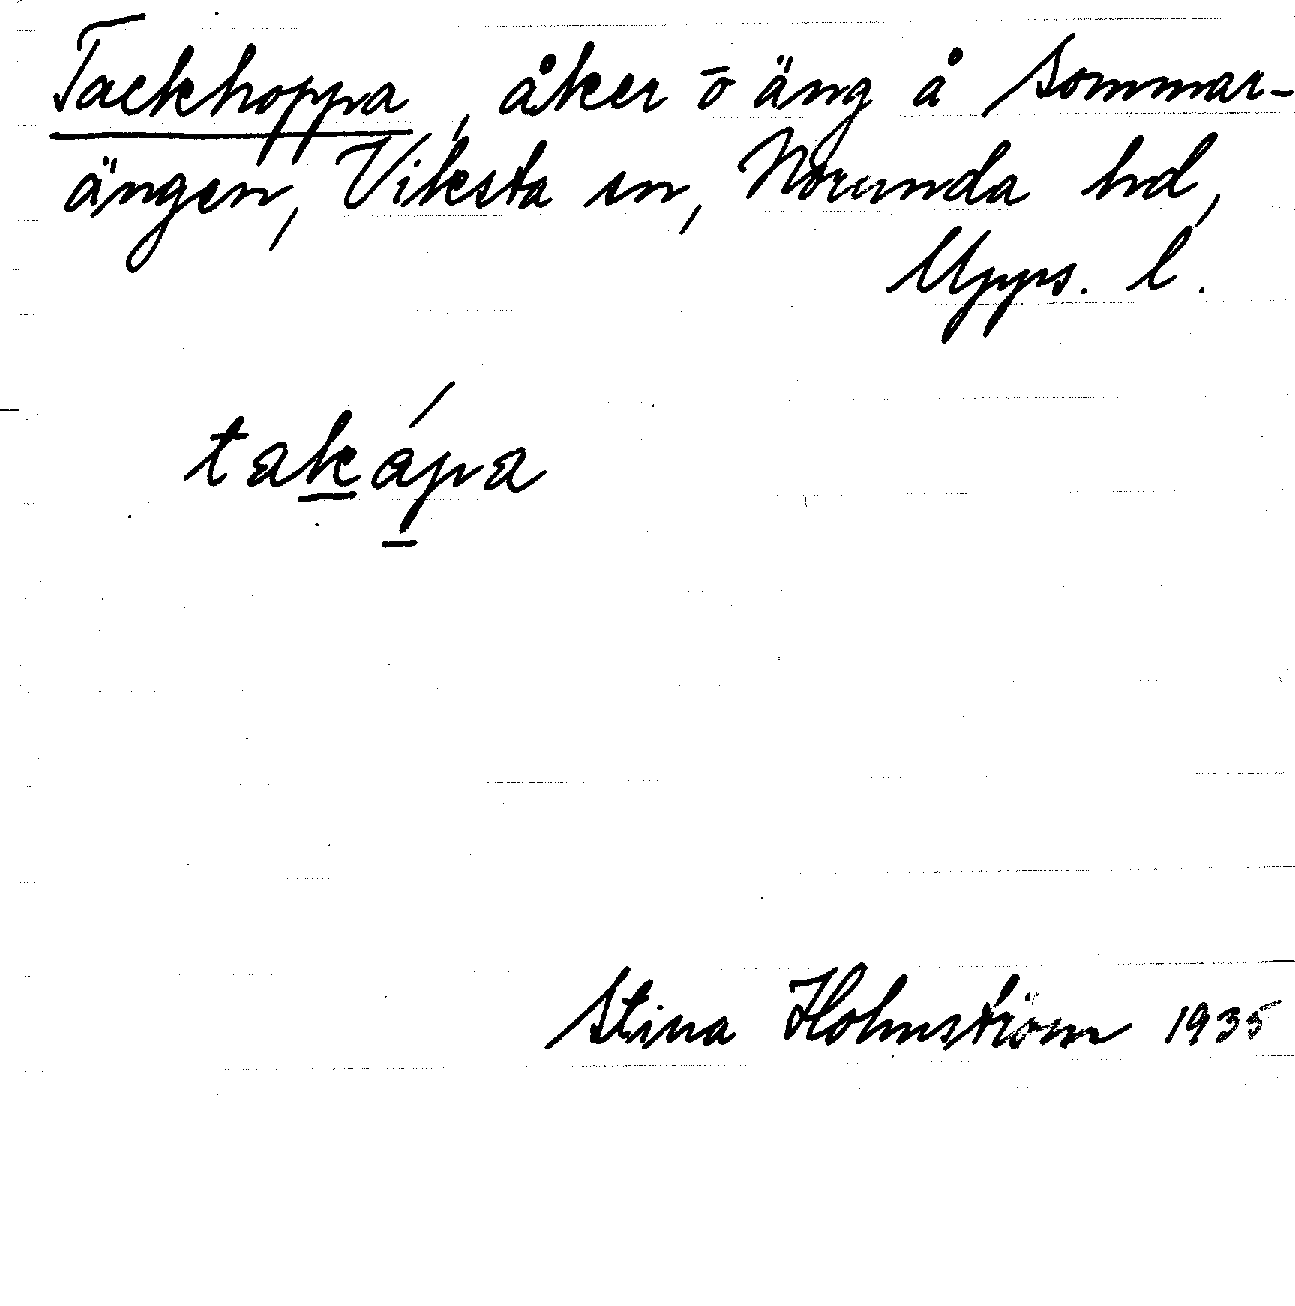 Tackhoppa, åker o äng å Sommar-
ängen, Viksta sn, Norunda hd,
Upps. l.
takåpa
Stina Holmström 1935